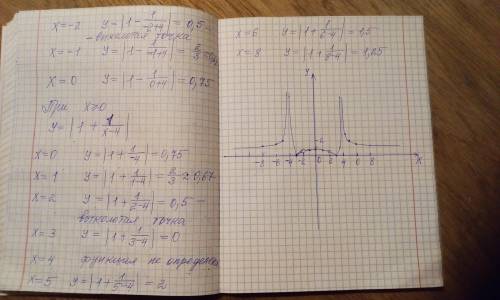 x=-2 y=|1-1/(-2+4)|=0,5 -
- выколотая точка
x=-1 y=|1-1/(-1+4)|=2/3
x=0 y=|1-1/(0+4)|=0,75
При x>0
y=|1+1/(x-4)|
x=0 y=|1+1/(-4)|=0,75
x=1 y=|1+1/(1-4)|=2/3≈0,67
x=2 y=|1+1/(2-4)|=0,5 -
выколотая точка
x=3 y=|1+1/(3-4)|=0
x=4 функция не определена
x=5 y=|1+1/(5-4)|=2
x=6 y=|1+1/(6-4)|=1,5
x=8 y=|1+1/(8-4)|=1,25
y
-8 -6 -4 -2 0 2 4 6 8 x